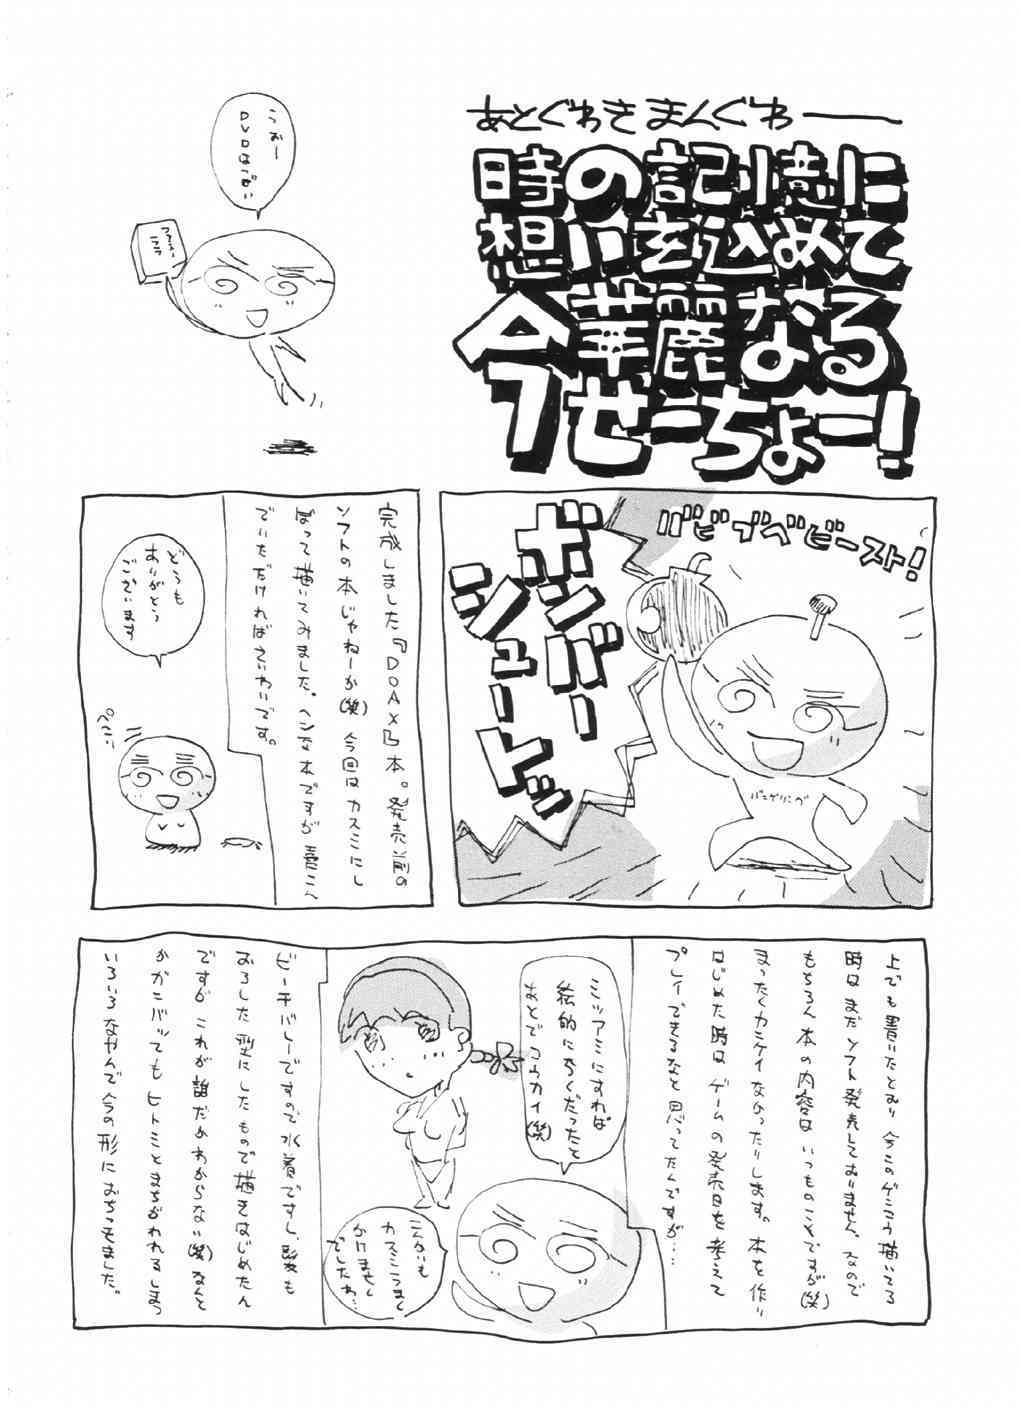 あとぐわき まんぐわ——
時の記憶に
想いを込めて
今華麗なる
せーちょー!
うおー
DVDはっばい
バビブベビースト!
ボンバー
シュートッ
完成しました『DOAX』本。発売前の
ソフトの本じゃねーか(笑) 今回はカスミにし
ぼって描いてみました。ヘンな本ですが 喜こん
でいただければさいわいです。
どうも
ありがとう
ございます
ぺこっ
上でも書いたとおり 今このゲンコウ描いてる
時はまだソフト発売しておりません。なので
もちろん本の内容は いつものことですが(笑)
まったくカンケイなかったりします。本を作り
はじめた時は ゲームの発売日を考えて
プレイできるなと思ってたんですが…
ミツアミにすれば
絵的にらくだったと
あとでコウカイ(笑)
こんかいも
カスミつうしん
かけません
でしたわ…
ビーチバレーですので水着ですし、髪も
おろした型にしたもので描きはじめたん
ですが これが誰だかわからない(笑)なんと
かがんバッてもヒトミとまちがわれるしまつ
いろいろなやんで今の形におちつきました。